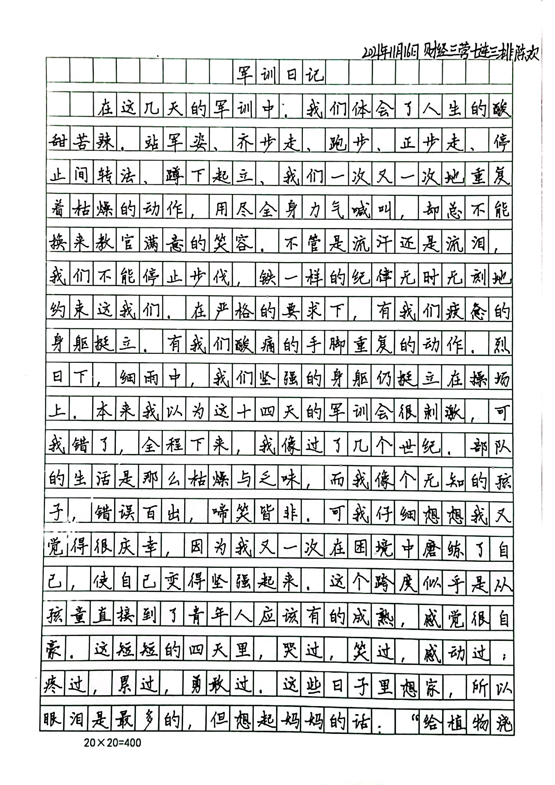 2021年11月16日 财经三营七连三排陈欢
军训日记
在这几天的军训中.我们体会了人生的酸
甜苦辣.站军姿、齐步走、跑步、正步走、停
止间转法、蹲下起立、我们一次又一次地重复
着枯燥的动作,用尽全身力气喊叫,却总不能
换来教官满意的笑容.不管是流汗还是流泪,
我们不能停止步伐,铁一样的纪律无时无刻地
约束这我们.在严格的要求下,有我们疲惫的
身躯挺立.有我们酸痛的手脚重复的动作.烈
日下,细雨中,我们坚强的身躯仍挺立在操场
上.本来我以为这十四天的军训会很刺激,可
我错了,全程下来,我像过了几个世纪.部队
的生活是那么枯燥与乏味,而我像个无知的孩
子,错误百出,啼笑皆非.可我仔细想想我又
觉得很庆幸,因为我又一次在困境中磨练了自
己,使自己变得坚强起来.这个跨度似乎是从
孩童直接到了青年人应该有的成熟,感觉很自
豪.这短短的四天里,哭过,笑过,感动过;
疼过,累过,勇敢过.这些日子里想家,所以
眼泪是最多的,但想起妈妈的话:“给植物浇
20×20=400